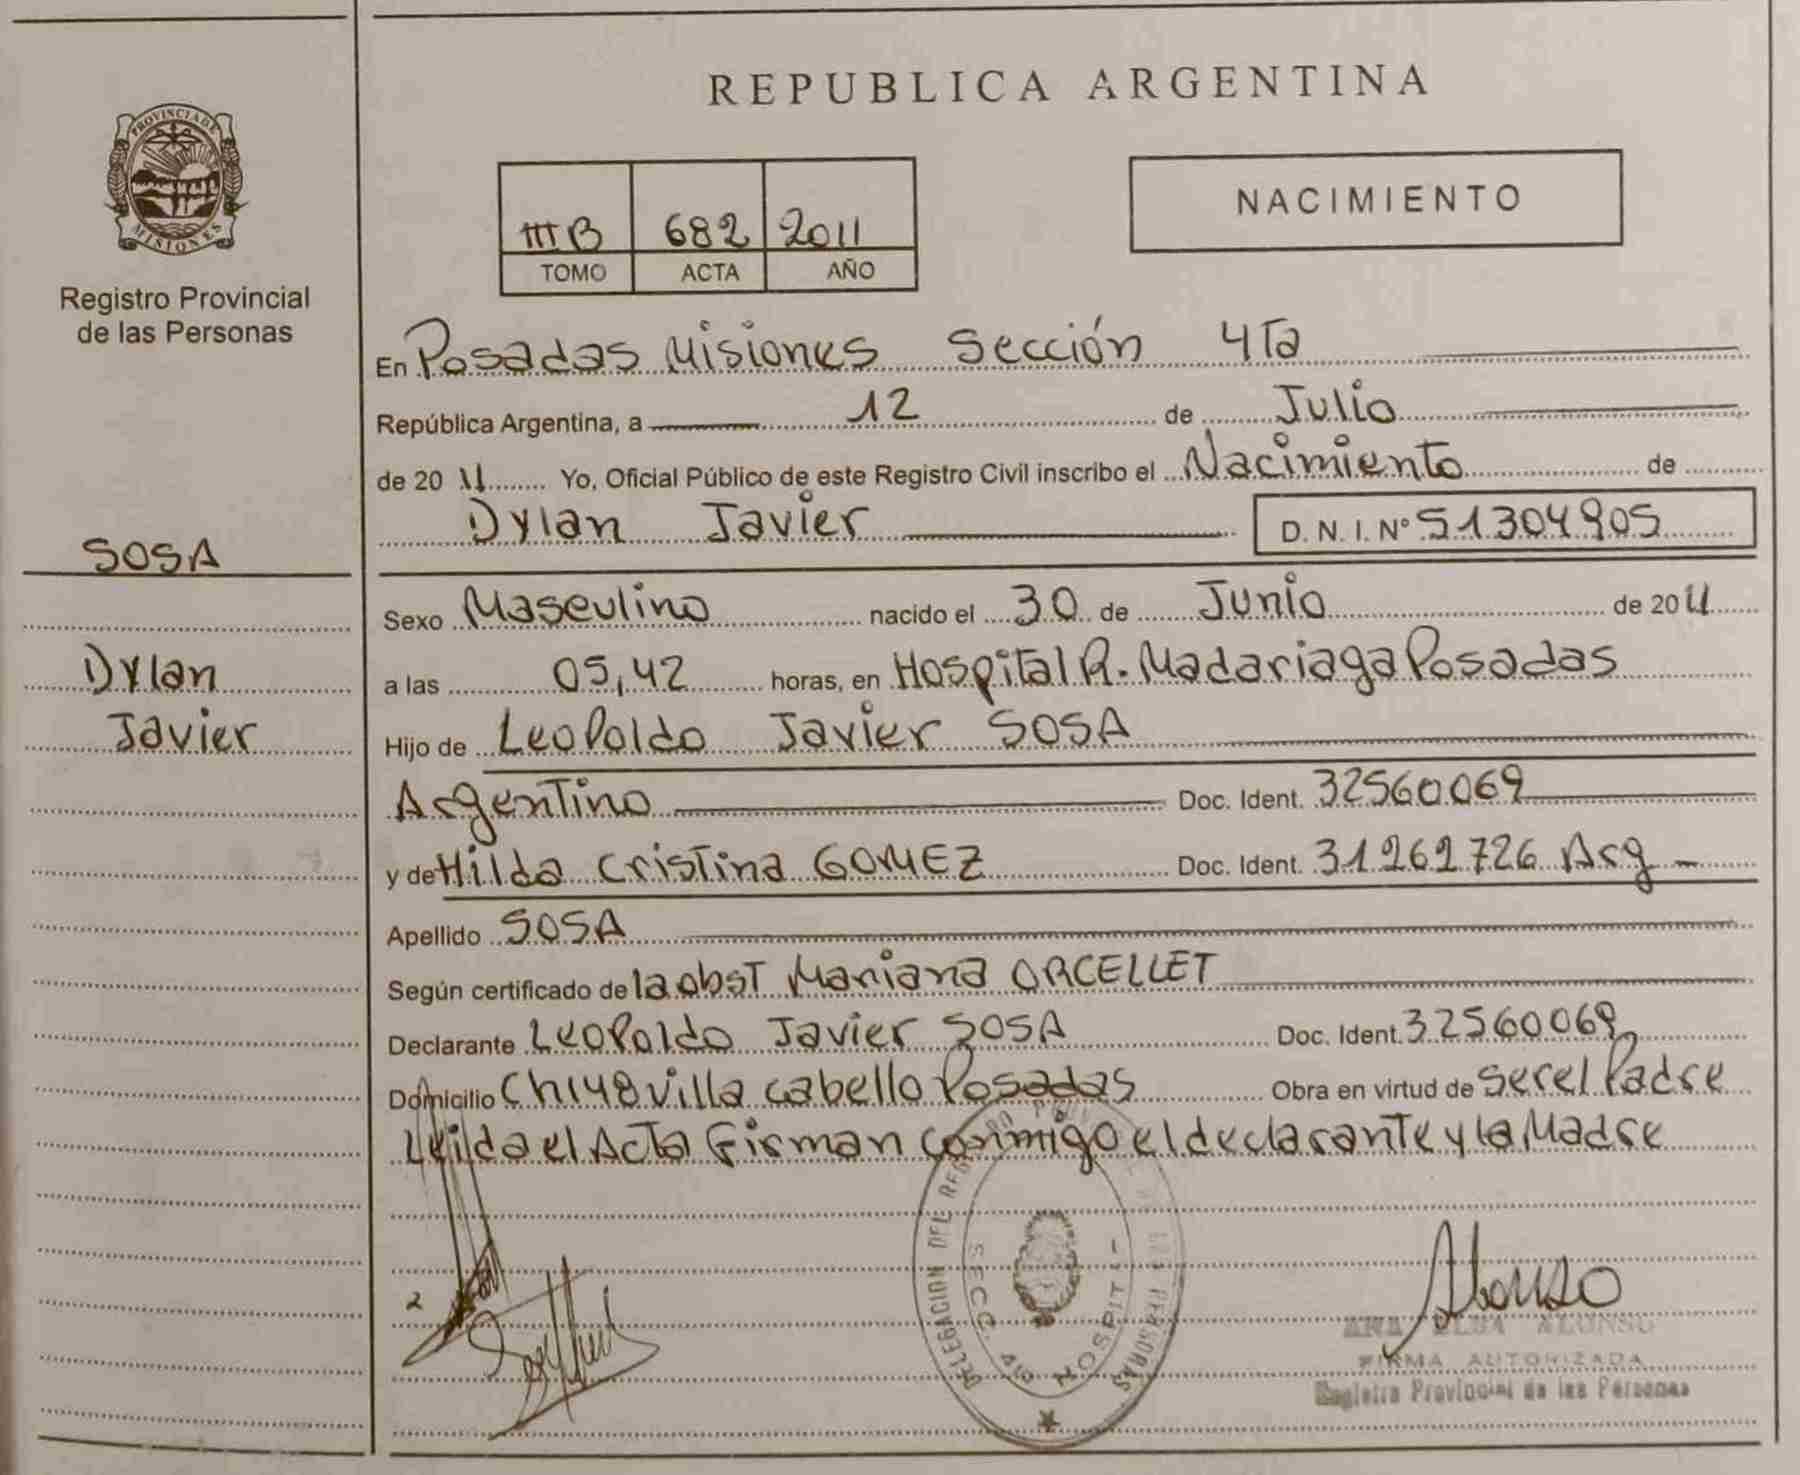 REPUBLICA ARGENTINA
PROVINCIA DE
MISIONES
Registro Provincial
de las Personas
III B 682 2011
TOMO ACTA AÑO
NACIMIENTO
En Posadas Misiones Sección 4Ta
República Argentina, a 12 de Julio
de 2011 Yo, Oficial Público de este Registro Civil inscribo el Nacimiento de
Dylan Javier D. N. I. Nº 51304905
SOSA
Dylan
Javier
Sexo Masculino nacido el 30 de Junio de 2011
a las 05,42 horas, en Hospital R. Madariaga Posadas
Hijo de Leopoldo Javier SOSA
Argentino Doc. Ident. 32560069
y de Hilda Cristina GOMEZ Doc. Ident. 31262726 Arg
Apellido SOSA
Según certificado de la obst Mariana ORCELLET
Declarante Leopoldo Javier SOSA Doc. Ident. 32560069
Domicilio Ch 148 Villa Cabello Posadas Obra en virtud de ser el Padre
Leida el Acta Firman conmigo el declarante y la Madre
DELEGACION DEL
SECC. 4ta HOSPIT
Alonso
ANA ELBA ALONSO
FIRMA AUTORIZADA
Registro Provincial de las Personas